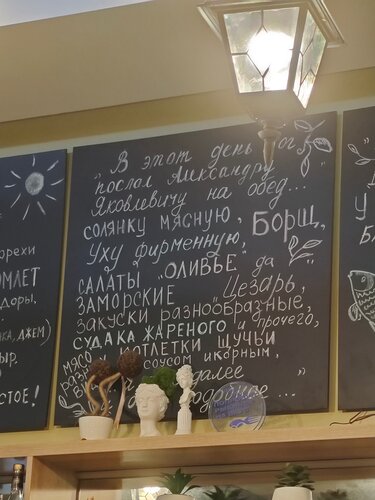 орехи
ОМЛЕТ
ДОРЫ,
ДЖЕМ)
ЫР.
СТОЕ!
„В этот день Бог
послал Александру
Яковлевичу на обед...
СОЛЯНКУ МЯСНУЮ, Борщ,
Уху фирменную,
САЛАТЫ „ОЛИВЬЕ" да Цезарь,
ЗАМОРСКИЕ
закуски разнообразные,
СУДАКА ЖАРЕНОГО и прочего,
МЯСО и КОТЛЕТКИ ЩУЧЬИ
соусом икорным,
далее
подобное..."
У